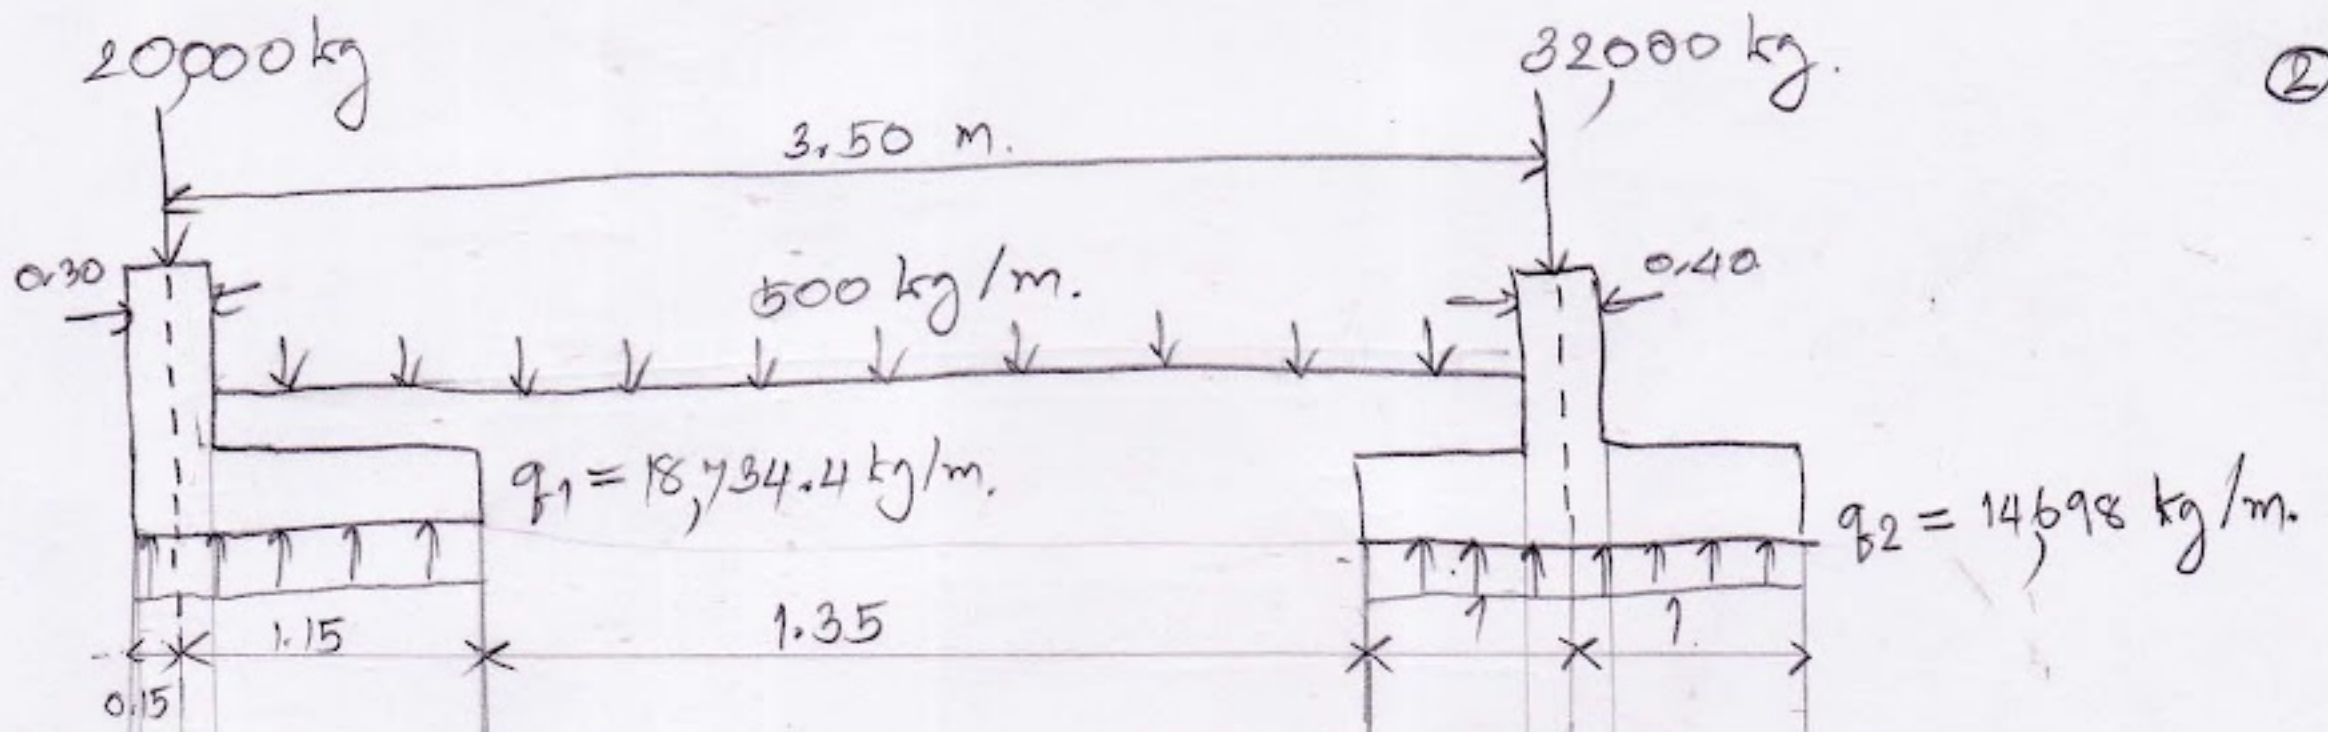 20,000 kg
32,000 kg.
2
3.50 m.
0.30
500 kg/m.
0.40
q1 = 18,734.4 kg/m.
q2 = 14,698 kg/m.
0.15
1.15
1.35
1
1.